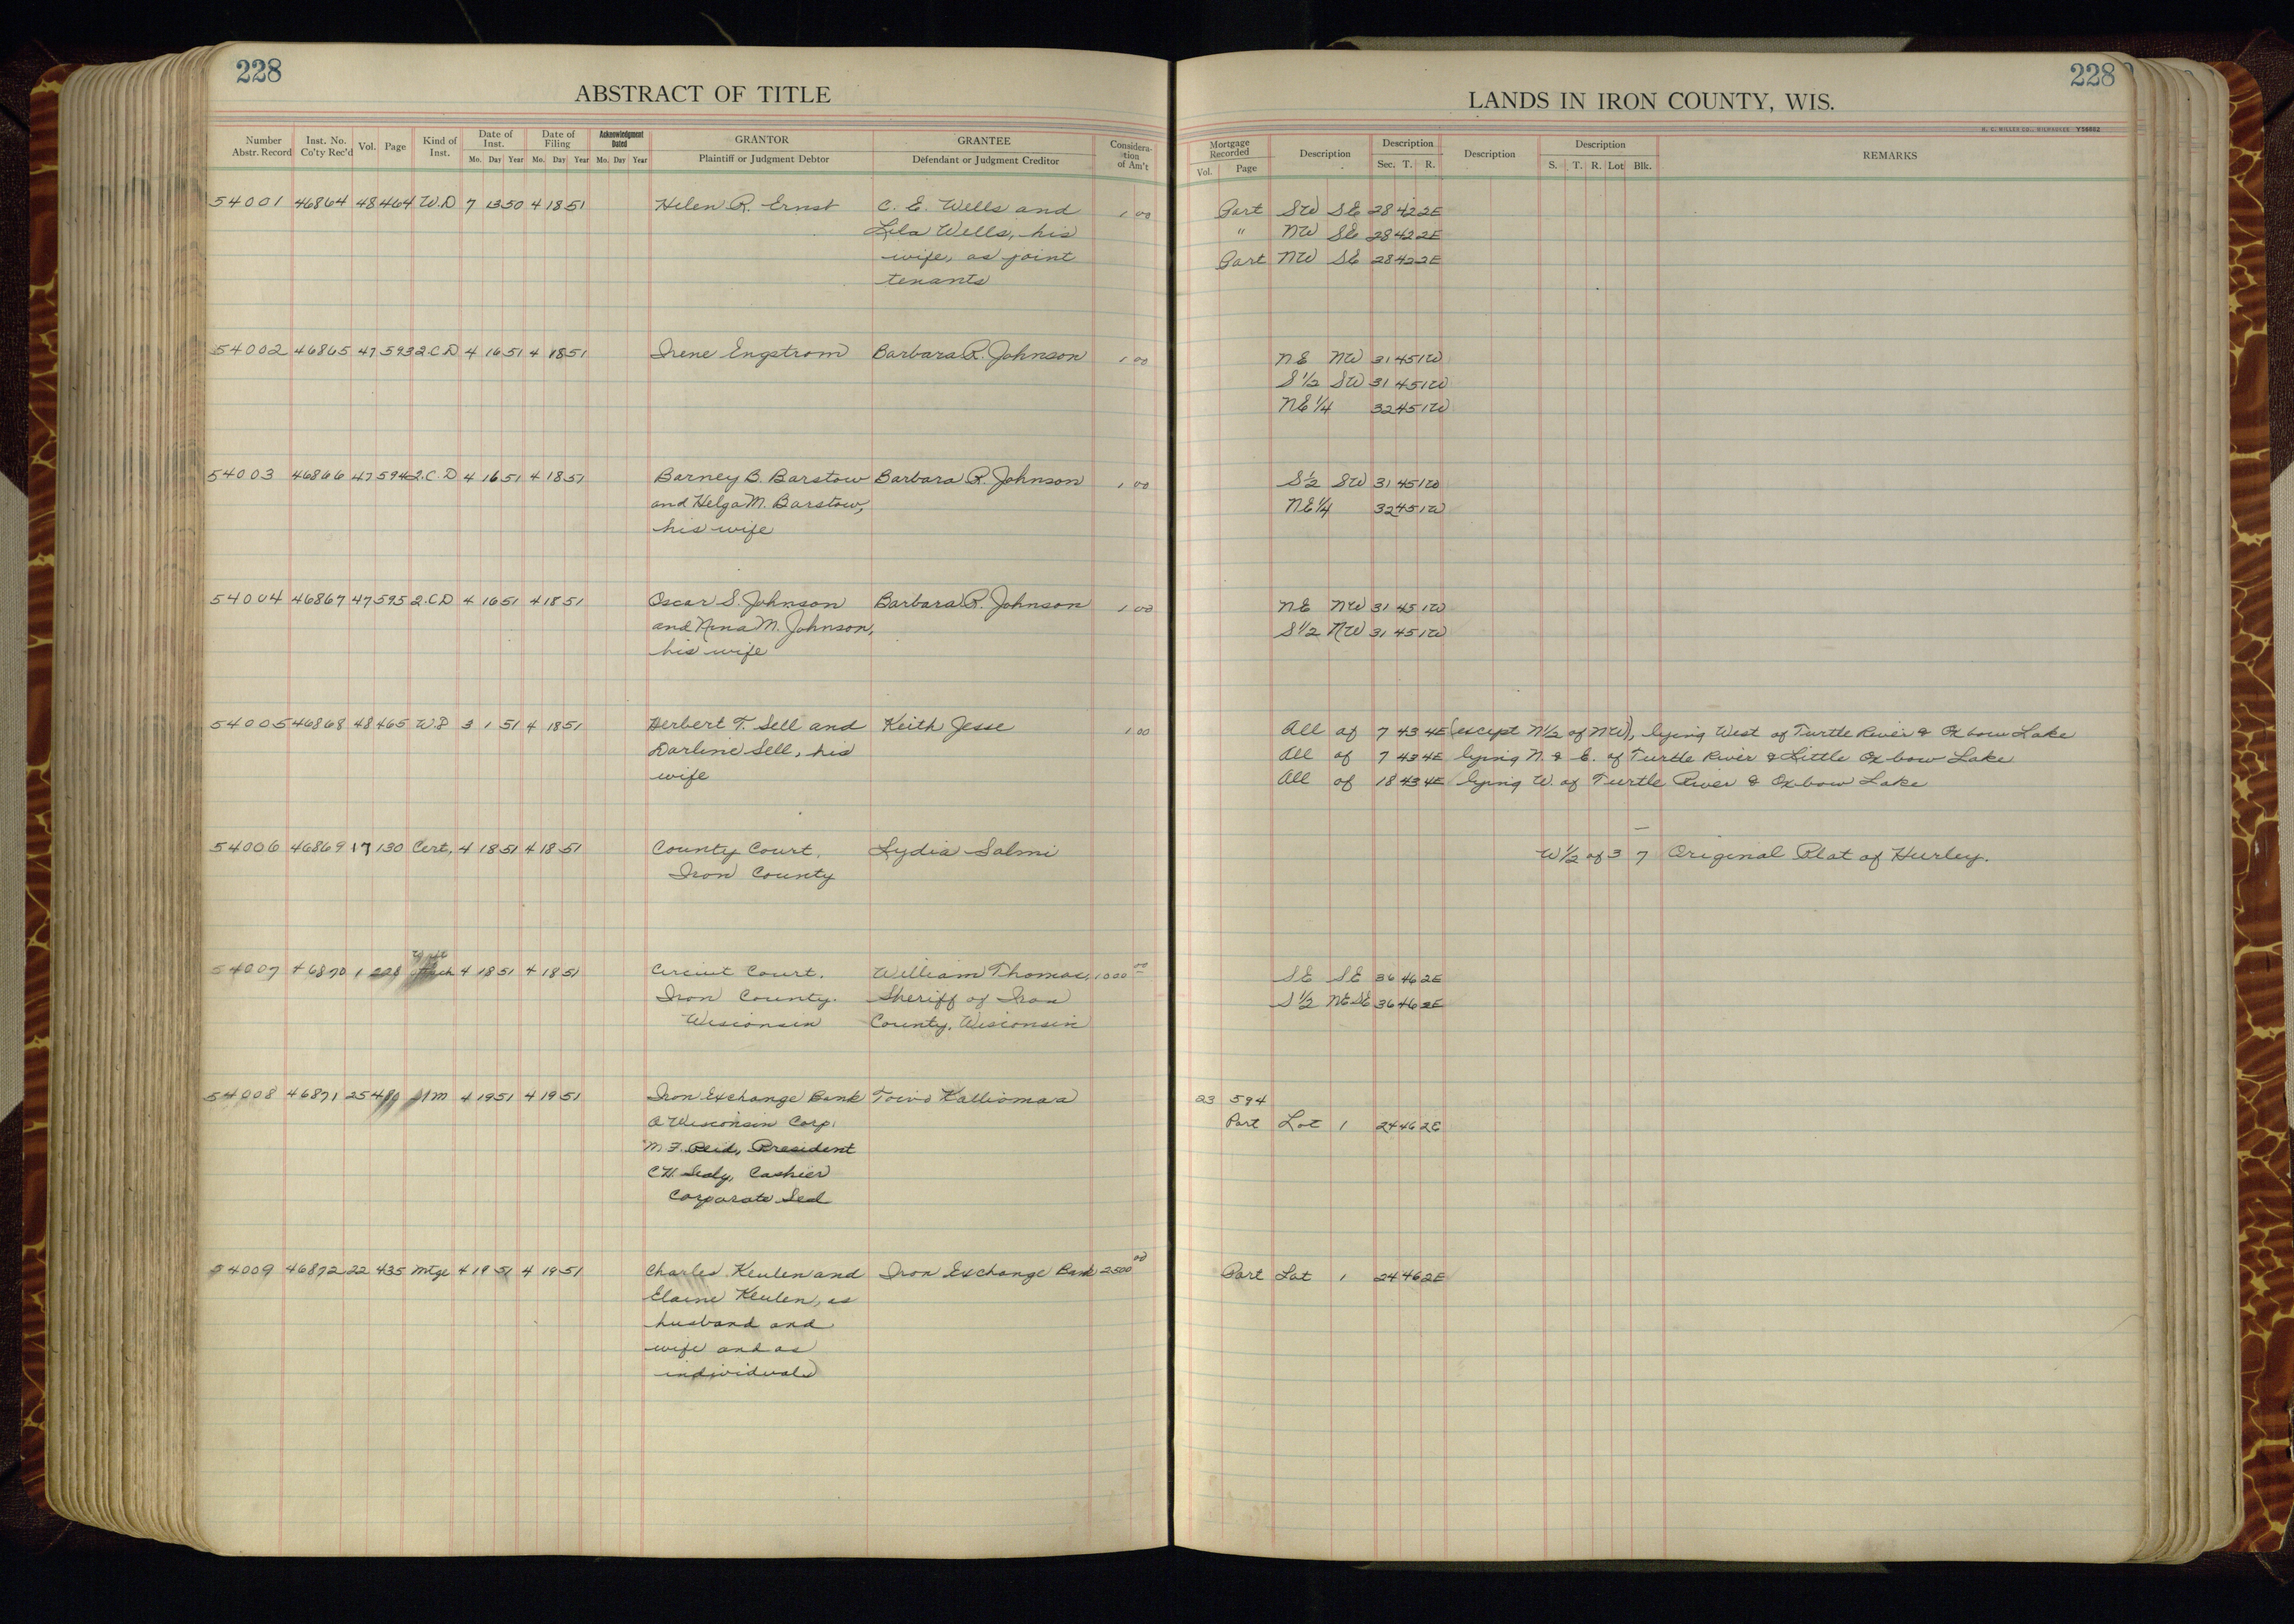 228
ABSTRACT OF TITLE
Number Abstr. Record Inst. No. Co'ty Rec'd Vol. Page Kind of Inst. Date of Inst. Mo. Day Year Date of Filing Mo. Day Year Acknowledgment Dated Mo. Day Year GRANTOR Plaintiff or Judgment Debtor GRANTEE Defendant or Judgment Creditor Considera-tion of Am't
54001 46864 48 464 W.D 7 13 50 4 18 51 Helen R. Ernst C. E. Wells and 1 00
Lela Wells, his
wife, as joint
tenants
54002 46865 47 593 2.C.D 4 16 51 4 18 51 Irene Engstrom Barbara R. Johnson 1 00
54003 46866 47 594 2.C.D 4 16 51 4 18 51 Barney B. Barstow Barbara R. Johnson 1 00
and Helga M. Barstow,
his wife
54004 46867 47 595 2.C.D 4 16 51 4 18 51 Oscar S. Johnson Barbara R. Johnson 1 00
and Nina M. Johnson,
his wife
54005 46868 48 465 W.D 3 1 51 4 18 51 Herbert T. Sell and Keith Jesse 1 00
Darline Sell, his
wife
54006 46869 17 130 Cert. 4 18 51 4 18 51 County Court, Lydia Salmi
Iron County
54007 46870 1 228 Attach 4 18 51 4 18 51 Circuit Court, William Thomas, 1000 00
Iron County. Sheriff of Iron
Wisconsin County, Wisconsin
54008 46871 25 480 4 19 51 4 19 51 Iron Exchange Bank Toivo Kalliomaa
A Wisconsin Corp.
M F. Reid, President
C H. Cashier
Corporate Seal
54009 46872 22 435 Mtge 4 19 51 4 19 51 Charles Keulen and Iron Exchange Bank 2500 00
Elaine Keulen, as
husband and
wife and as
individuals
LANDS IN IRON COUNTY, WIS.
228
H. C. MILLER CO., MILWAUKEE
Mortgage Recorded Vol. Page Description Description Sec. T. R. Description Description S. T. R. Lot Blk. REMARKS
Part SW SE 28 42 2E
" NW SE 28 42 2E
Part NW SE 28 42 2E
NE NW 31 45 1W
S 1/2 SW 31 45 1W
NE 1/4 32 45 1W
S 1/2 SW 31 45 1W
NE 1/4 32 45 1W
NE NW 31 45 1W
S 1/2 NW 31 45 1W
All of 7 43 4E (except N 1/2 of NW), lying West of Turtle River & Oxbow Lake
All of 7 43 4E lying N. & E. of Turtle River & Little Oxbow Lake
All of 18 43 4E lying W. of Turtle River & Oxbow Lake
W 1/2 of 3 7 Original Plat of Hurley.
SE SE 36 46 2E
S 1/2 NE SE 36 46 2E
23 594
Part Lot 1 24 46 2E
Part Lot 1 24 46 2E